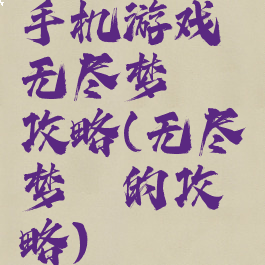 手机游戏
无尽梦
攻略(无尽
梦 的攻
略)